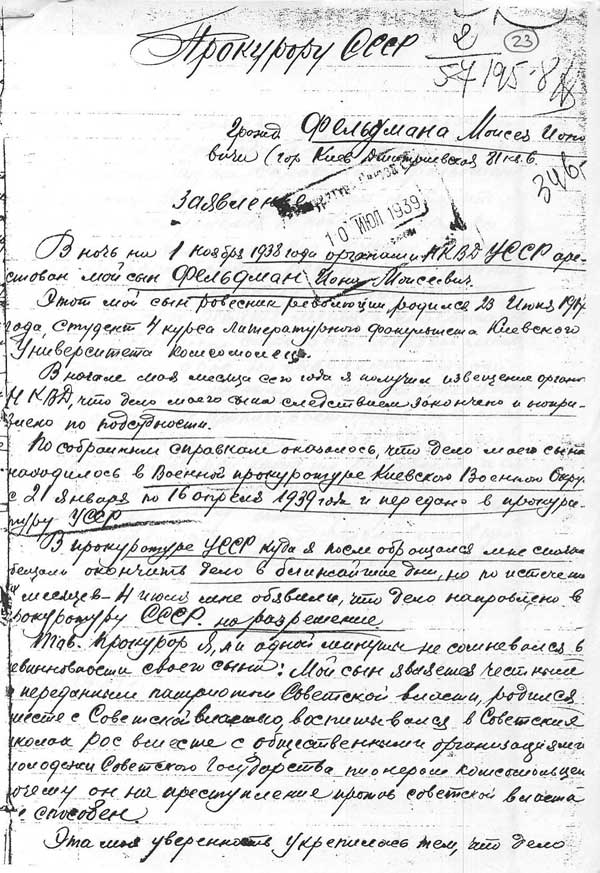 Прокурору СССР
2
23
54195-8
Гражд Фельдмана Моисея Ионо
вича (гор Киев Дмитриевская 21 кв. 6
346
Заявление
10 ИЮЛ 1939
В ночь на 1 ноября 1938 года органами НКВД УССР аре
стован мой сын Фельдман Иона Моисеевич.
Этот мой сын ровесник революции, родился 23 июня 1917
года, студент 4 курса литературного факультета Киевского
Университета комсомолец.
В начале мая месяца сего года я получил извещение органо
НКВД, что дело моего сына следствием закончено и напра
влено по подсудности.
По собранным справкам оказалось, что дело моего сына
находилось в Военной прокуратуре Киевского Военного Окру
с 21 января по 16 апреля 1939 года и передано в прокура
туру УССР
В прокуратуре УССР куда я после обращался мне
обещали окончить дело в ближайшие дни, но по истечении
месяцев 4 июля мне объявили, что дело направлено в
прокуратуру СССР на разрешение
Тов. Прокурор я, ни одной минуты не сомневался в
евинновности своего сына: Мой сын является честным
и переданным патриотом Советской власти, родился
месте с Советской властью, воспитывался в Советских
школах рос вместе с общественными организациями
молодежи Советского Государства пионером комсомольцем
почему он на преступление против советской власти
не способен
Эта моя уверенность укрепилась тем, что дело